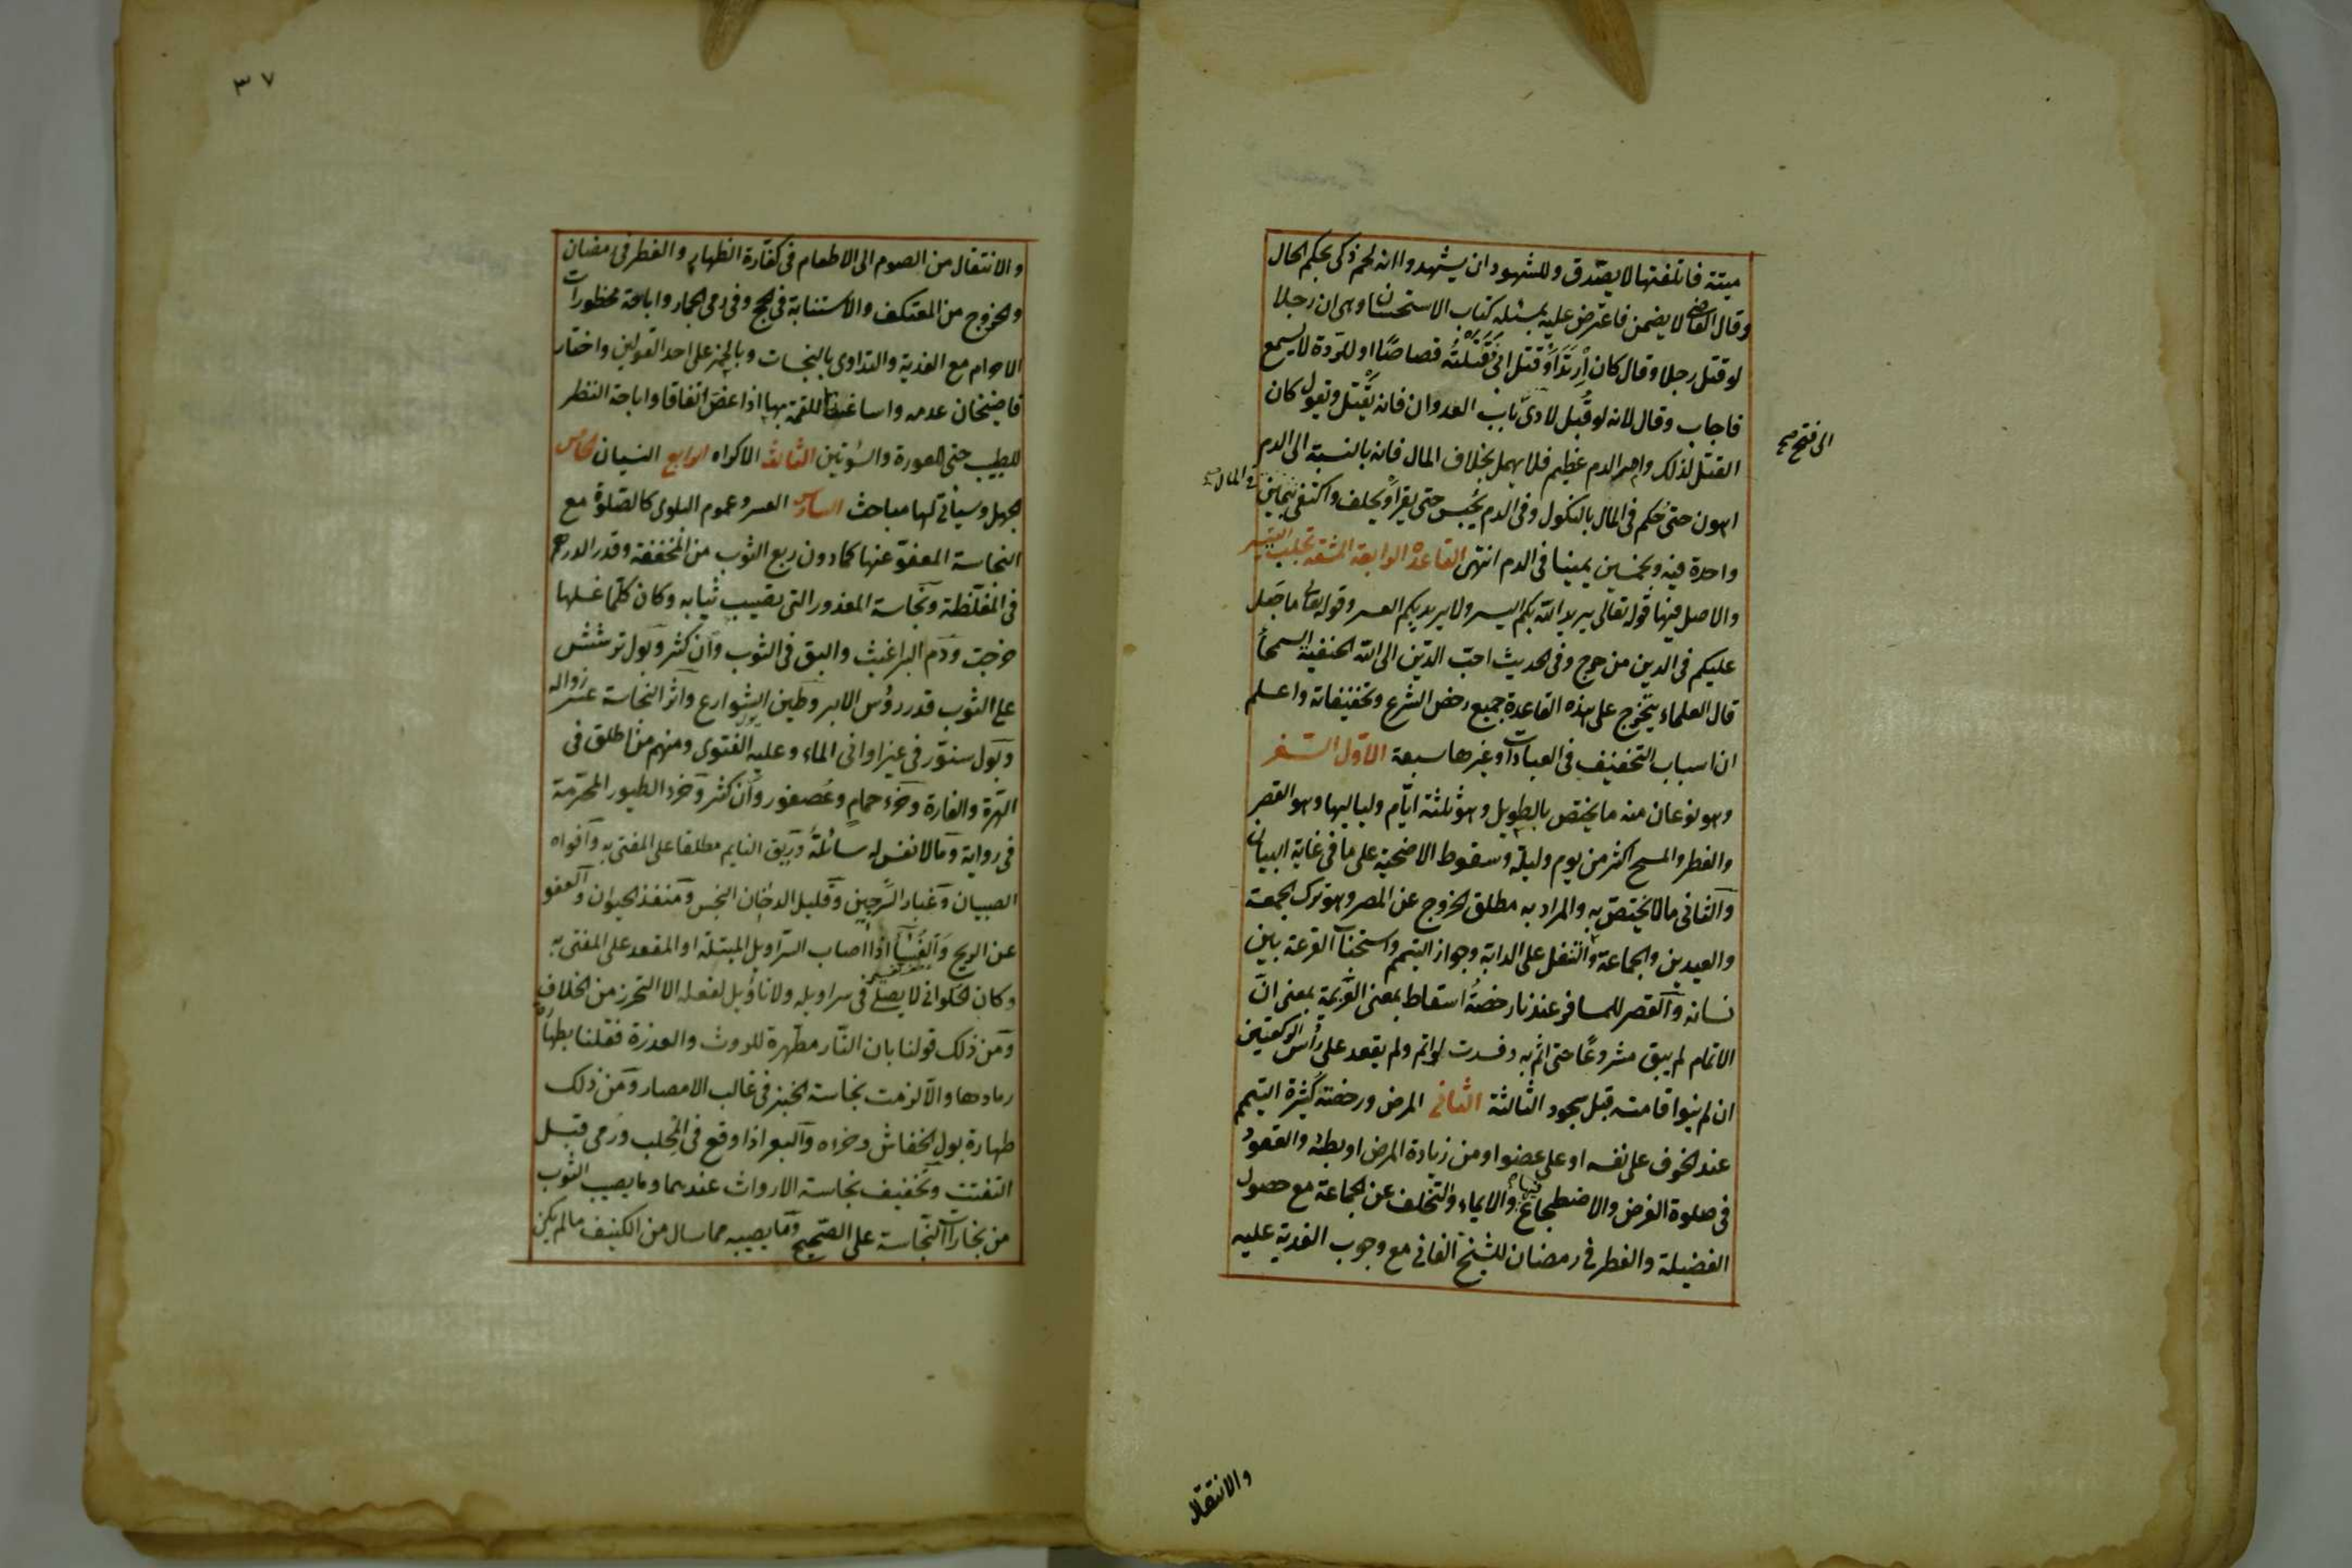 ميتة فاتلفتها لا يصدق وللشهود ان يشهدوا انه لحم ذكى بحكم الحال
وقال القاضى لا يضمن فاعترض عليه بمسئلة كتاب الاستحسان وهى ان رجلا
لو قتل رجلا وقال كان ارتد او قتل ابى فقتلته قصاصا او للردة لا يسمع
فاجاب وقال لانه لو قبل لادى باب العدوان فانه يقتل ويقول كان
الى فتح صح
القتل لذلك وامر الدم عظيم فلا يهمل بخلاف المال فانه بالنسبة الى الدم
اهون حتى حكم فى المال بالنكول وفى الدم يحبس حتى يقر او يحلف واكتفى بيمين
فى المال صح
واحدة فيه وبخمسين يمينا فى الدم انتهى القاعدة الرابعة المشقة تجلب التيسير
والاصل فيها قوله تعالى يريد الله بكم اليسر ولا يريد بكم العسر وقوله تعالى ما جعل
عليكم فى الدين من حرج وفى الحديث احب الدين الى الله الحنفية السمحا
قال العلماء يتخرج على هذه القاعدة جميع رخص الشرع وتخفيفاته واعلم
ان اسباب التخفيف فى العبادات وغيرها سبعة الاول السفر
وهو نوعان منه ما يختص بالطويل وهو ثلثة ايام ولياليها وهو القصر
والفطر والمسح اكثر من يوم وليلة وسقوط الاضحية على ما فى غاية البيان
والثانى مالا يختص به والمراد به مطلق الخروج عن المصر وهو ترك الجمعة
والعيدين والجماعة والتنفل على الدابة وجواز التيمم واستحباب القرعة بين
نسائه والقصر للمسافر عندنا رخصة اسقاط بمعنى العزيمة بمعنى ان
الاتمام لم يبق مشروعا حتى اثم به وفسدت لو اتم ولم يقعد على رأس الركعتين
ان لم ينوا قامته قبل سجود الثالثة الثانى المرض ورخصة كثيرة التيمم
عند الخوف على نفسه او على عضو او من زيادة المرض او بطئه والقعود
فى صلوة الفرض والاضطجاع فيها والايماء والتخلف عن الجماعة مع حصول
الفضيلة والفطر فى رمضان للشيخ الفانى مع وجوب الفدية عليه
والانتقال
٣٧
والانتقال من الصوم الى الاطعام فى كفارة الظهار والفطر فى رمضان
والخروج من المعتكف والاستنابة فى الحج وفى رمى الجمار واباحة محظورات
الاحرام مع الفدية والتداوى بالنجسات وبالخمر على احد القولين واختار
قاضيخان عدمه واساغة اللقمة بها اذا غص اتفاقا واباحة النظر
للطبيب حتى العورة والسوتين الثالث الاكراه الرابع النسيان الخامس
الجهل وسياتى لها مباحث السادس العسر وعموم البلوى كالصلوة مع
النجاسة المعفو عنها كما دون ربع الثوب من المخففة وقدر الدرهم
فى المغلظة ونجاسة المعذور التى تصيب ثيابه وكان كلما غسلها
خرجت ودم البراغيث والبق فى الثوب وان كثر وبول ترشش
على الثوب قدر رؤس الابر وطين الشوارع واثر النجاسة عسر زواله
وبول سنور فى غير اوانى الماء وعليه الفتوى ومنهم من اطلق فى
الهرة والفارة وخرء حمام وعصفور وان كثر وخرء الطيور المحرمة
فى رواية ومالا نفس له سائلة وريق النايم مطلقا على المفتى به وافواه
الصبيان وغبار السرجين وقليل الدخان النجس ومنفذ الحيوان والعفو
عن الريح والفسا اذا اصاب السراويل المبتلة او المقعد على المفتى به
وكان الحلوانى لا يصلى فى سراويله ولا تاؤيل لفعله الا التحرز من الخلاف
ومن ذلك قولنا بان النار مطهرة للروث والعذرة فقلنا بطهارة
رمادها والا لزمت نجاسة الخبز فى غالب الامصار ومن ذلك
طهارة بول الخفاش وخراه والبعر اذا وقع فى المحلب ورمى قبل
التفتت وتخفيف نجاسة الارواث عندهما وما يصيب الثوب
من بخارات النجاسة على الصحيح وما يصيبه مما سال من الكنيف مالم يكن